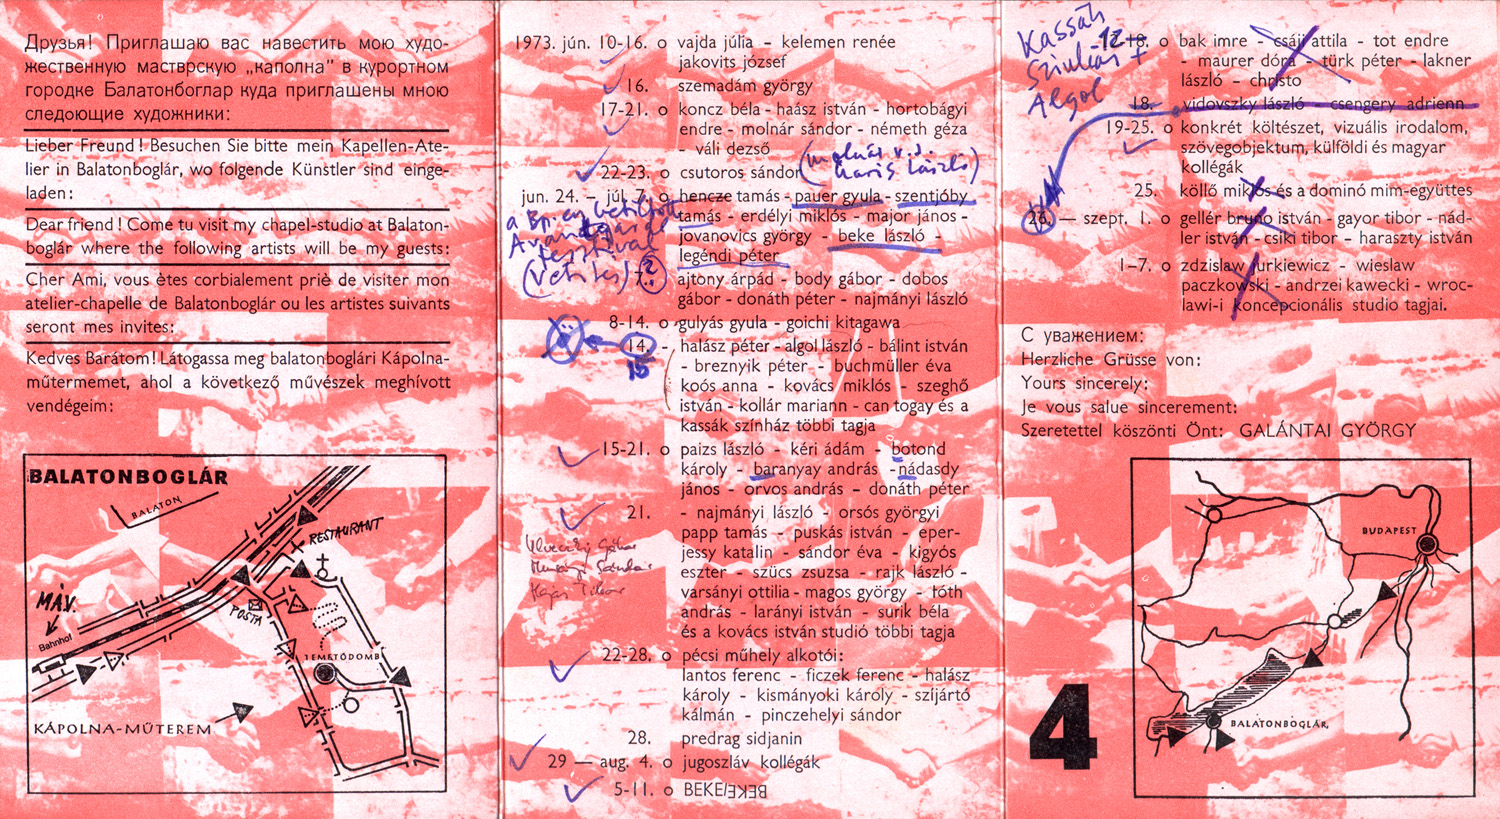 Друзья! Приглашаю вас навестить мою худо-
жественную маствркскую „каполна" в курортном
городке Балатонбоглар куда приглашены мною
следоющие художники:
Lieber Freund! Besuchen Sie bitte mein Kapellen-Ate-
lier in Balatonboglár, wo folgende Künstler sind einge-
laden:
Dear friend! Come tu visit my chapel-studio at Balaton-
boglár where the following artists will be my guests:
Cher Ami, vous ètes corbialement priè de visiter mon
atelier-chapelle de Balatonboglár ou les artistes suivants
seront mes invites:
Kedves Barátom! Látogassa meg balatonboglári Kápolna-
műtermemet, ahol a következő művészek meghívott
vendégeim:
BALATONBOGLÁR
BALATON
RESTAURANT
MÁV.
Bahnhof
POSTA
TEMETŐDOMB
KÁPOLNA-MŰTEREM
1973. jún. 10-16. o vajda júlia - kelemen renée
jakovits józsef
16. szemadám györgy
17-21. o koncz béla - haász istván - hortobágyi
endre - molnár sándor - németh géza
- váli dezső
22-23. o csutoros sándor (molnár v. j.
haris lászló)
jun. 24. — júl. 7. o hencze tamás - pauer gyula - szentjóby
tamás - erdélyi miklós - major jános -
jovanovics györgy - beke lászló -
legéndi péter
a
Avantgarde
fesztivál
(vetítés) 7. ?
ajtony árpád - body gábor - dobos
gábor - donáth péter - najmányi lászló
8-14. o gulyás gyula - goichi kitagawa
14. - halász péter - algol lászló - bálint istván
15
- breznyik péter - buchmüller éva
koós anna - kovács miklós - szeghő
istván - kollár mariann - can togay és a
kassák színház többi tagja
15-21. o paizs lászló - kéri ádám - botond
károly - baranyay andrás - nádasdy
jános - orvos andrás - donáth péter
21. - najmányi lászló - orsós györgyi
papp tamás - puskás istván - eper-
jessy katalin - sándor éva - kigyós
eszter - szücs zsuzsa - rajk lászló -
varsányi ottilia - magos györgy - tóth
andrás - larányi istván - surik béla
és a kovács istván studió többi tagja
22-28. o pécsi műhely alkotói:
lantos ferenc - ficzek ferenc - halász
károly - kismányoki károly - szíjártó
kálmán - pinczehelyi sándor
28. predrag sidjanin
29 — aug. 4. o jugoszláv kollégák
5-11. o BEKE/BEKE
Kassák
Szinház +
Algol
12-18. o bak imre - csáji attila - tot endre
- maurer dóra - türk péter - lakner
lászló - christo
18. - vidovszky lászló - csengery adrienn
19-25. o konkrét költészet, vizuális irodalom,
szövegobjektum, külföldi és magyar
kollégák
25. köllő miklós és a dominó mim-együttes
26. — szept. 1. o gellér bruno istván - gayor tibor - nád-
ler istván - csiki tibor - haraszty istván
1-7. o zdzislaw jurkiewicz - wieslaw
paczkowski - andrzei kawecki - wroc-
lawi-i koncepcionális studio tagjai.
С уважением:
Herzliche Grüsse von:
Yours sincerely:
Je vous salue sincerement:
Szeretettel köszönti Önt: GALÁNTAI GYÖRGY
4
BUDAPEST
BALATONBOGLÁR